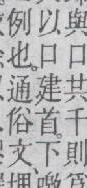 與口口共千則
以口建首下
例也通俗文